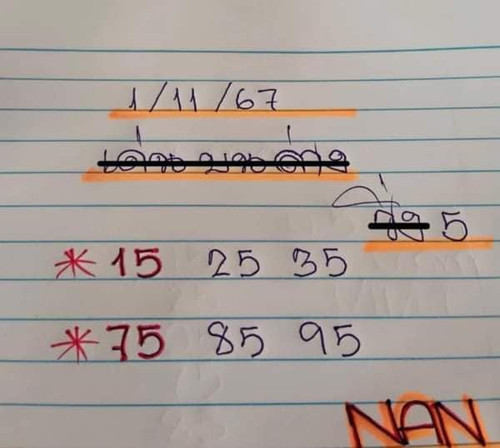 1/11/67
เด่น บน ล่าง
วิ่ง 5
* 15 25 35
* 75 85 95
NAN